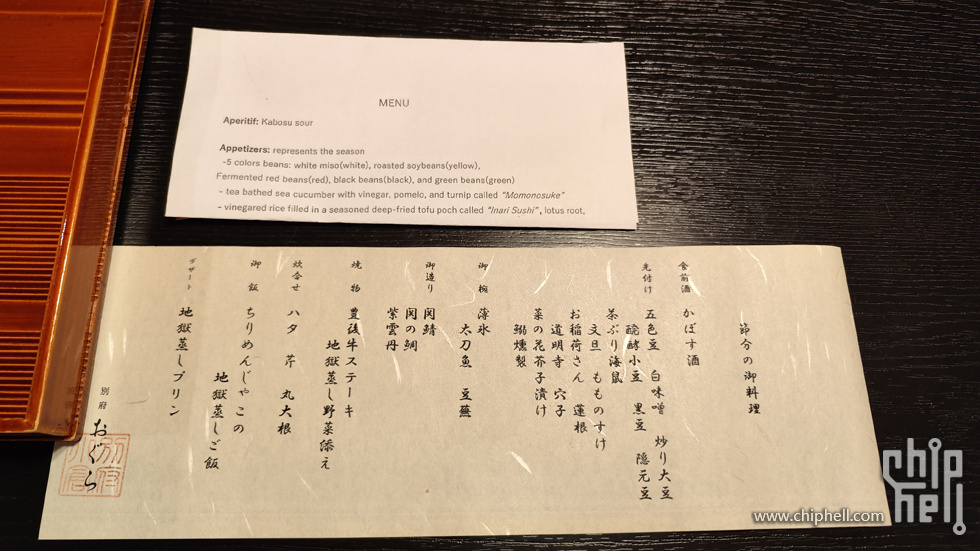 MENU
Aperitif: Kabosu sour
Appetizers: represents the season
-5 colors beans: white miso(white), roasted soybeans(yellow),
Fermented red beans(red), black beans(black), and green beans(green)
- tea bathed sea cucumber with vinegar, pomelo, and turnip called "Momonosuke"
- vinegared rice filled in a seasoned deep-fried tofu poch called "Inari Sushi", lotus root,
節分の御料理
食前酒 かぼす酒
先付け 五色豆 白味噌 炒り大豆
醗酵小豆 黒豆 隠元豆
茶ぶり海鼠
文旦 もものすけ
お稲荷さん 蓮根
道明寺 穴子
菜の花芥子漬け
鰯燻製
御椀 薄氷
太刀魚 豆蕪
御造り 関鯖
関の鯛
紫雲丹
焼物 豊後牛ステーキ
地獄蒸し野菜添え
炊合せ ハタ 芹 丸大根
御飯 ちりめんじゃこの
地獄蒸しご飯
デザート 地獄蒸しプリン
別府 おぐら
chip hell
www.chiphell.com